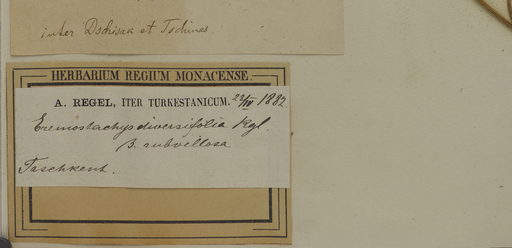 inter Dschisak et Tschinas
HERBARIUM REGIUM MONACENSE.
A. REGEL, ITER TURKESTANICUM. 23/IV 1882.
Eremostachys diversifolia Rgl.
β. subvillosa
Taschkent.